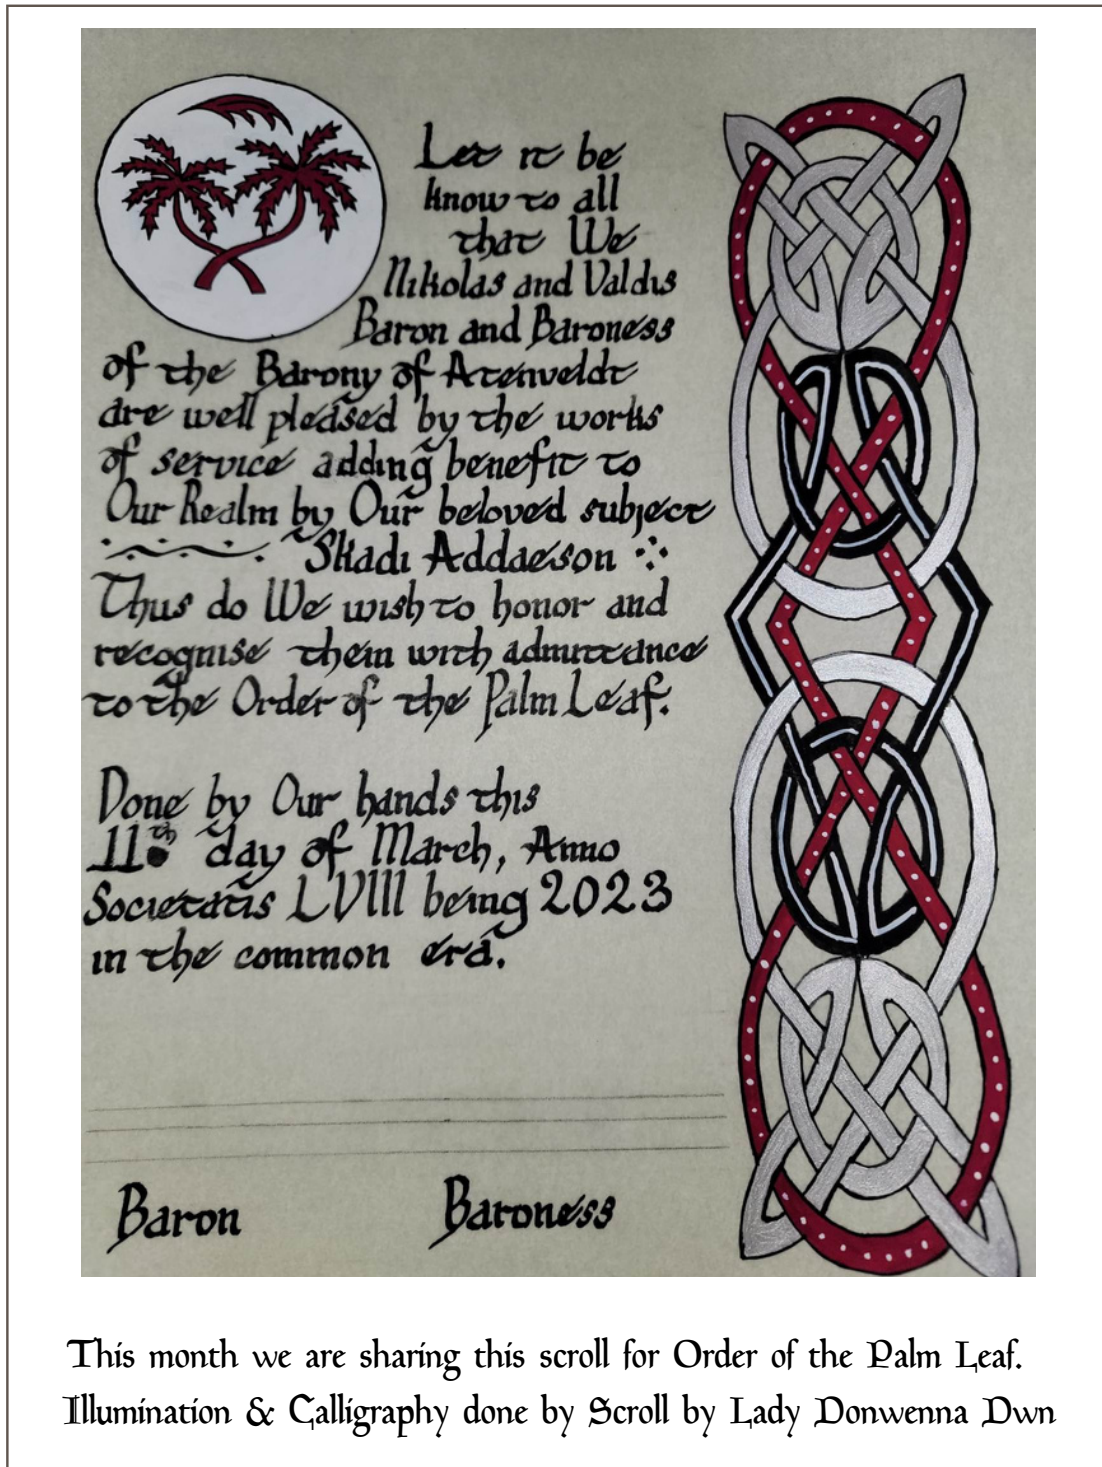 Let it be
know to all
that We
Nikolas and Valdis
Baron and Baroness
of the Barony of Atenveldt
are well pleased by the works
of service adding benefit to
Our Realm by Our beloved subject
Skadi Addaeson
Thus do We wish to honor and
recognise them with admittance
to the Order of the Palm Leaf.
Done by Our hands this
11th day of March, Anno
Societatis LVIII being 2023
in the common era.
Baron Baroness
This month we are sharing this scroll for Order of the Palm Leaf.
Illumination & Calligraphy done by Scroll by Lady Donwenna Dwn